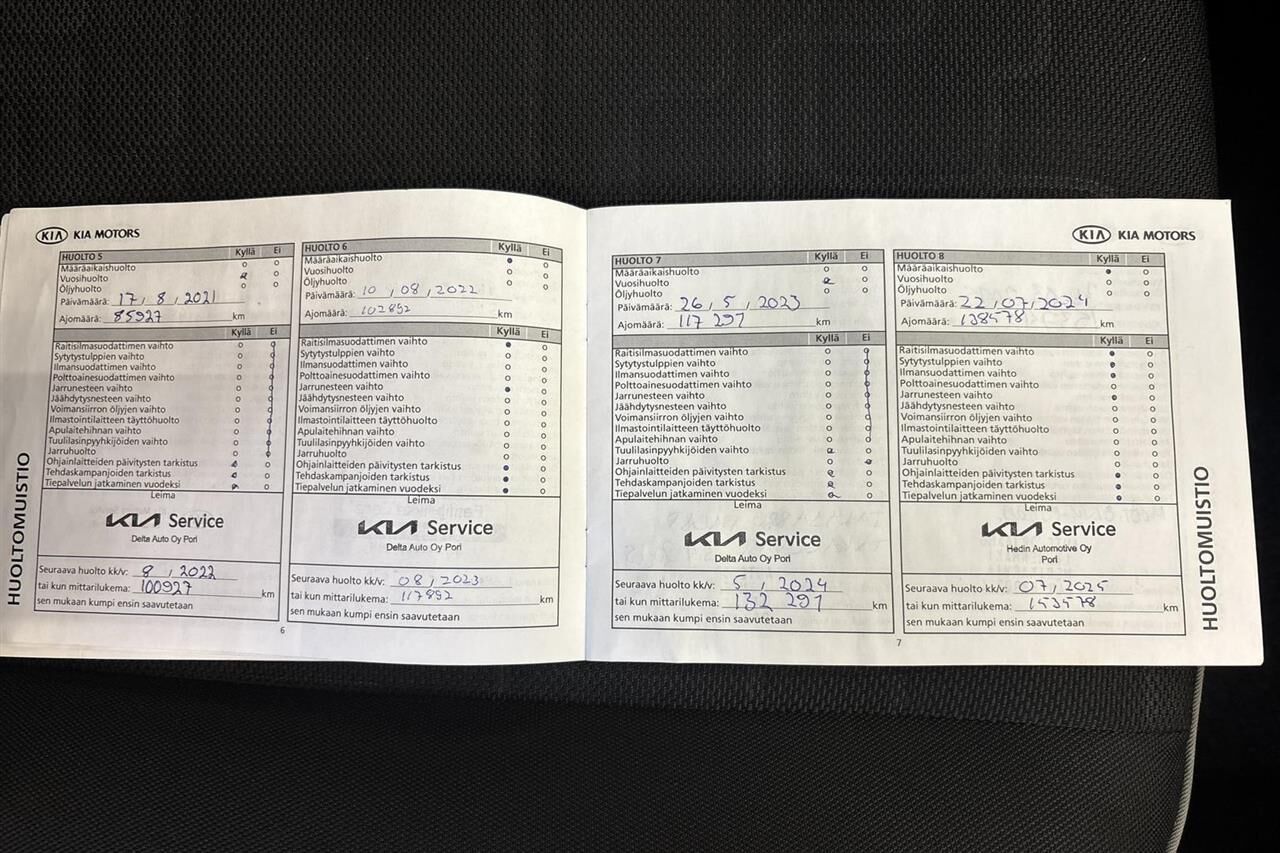 KIA KIA MOTORS
HUOLTO 5 Kyllä Ei
Määräaikaishuolto
Vuosihuolto
Öljyhuolto
Päivämäärä: 17, 8, 2021
Ajomäärä: 85927 km
Kyllä Ei
Raitisilmasuodattimen vaihto
Sytytystulppien vaihto
Ilmansuodattimen vaihto
Polttoainesuodattimen vaihto
Jarrunesteen vaihto
Jäähdytysnesteen vaihto
Voimansiirron öljyjen vaihto
Ilmastointilaitteen täyttöhuolto
Apulaitehihnan vaihto
Tuulilasinpyyhkijöiden vaihto
Jarruhuolto
Ohjainlaitteiden päivitysten tarkistus
Tehdaskampanjoiden tarkistus
Tiepalvelun jatkaminen vuodeksi
Leima
KIA Service
Delta Auto Oy Pori
Seuraava huolto kk/v: 8, 2022
tai kun mittarilukema: 100927 km
sen mukaan kumpi ensin saavutetaan
HUOLTO 6 Kyllä Ei
Määräaikaishuolto
Vuosihuolto
Öljyhuolto
Päivämäärä: 10, 08, 2022
Ajomäärä: 102892 km
Kyllä Ei
Raitisilmasuodattimen vaihto
Sytytystulppien vaihto
Ilmansuodattimen vaihto
Polttoainesuodattimen vaihto
Jarrunesteen vaihto
Jäähdytysnesteen vaihto
Voimansiirron öljyjen vaihto
Ilmastointilaitteen täyttöhuolto
Apulaitehihnan vaihto
Tuulilasinpyyhkijöiden vaihto
Jarruhuolto
Ohjainlaitteiden päivitysten tarkistus
Tehdaskampanjoiden tarkistus
Tiepalvelun jatkaminen vuodeksi
Leima
KIA Service
Delta Auto Oy Pori
Seuraava huolto kk/v: 08, 2023
tai kun mittarilukema: 117892 km
sen mukaan kumpi ensin saavutetaan
HUOLTOMUISTIO
6
KIA KIA MOTORS
HUOLTO 7 Kyllä Ei
Määräaikaishuolto
Vuosihuolto
Öljyhuolto
Päivämäärä: 26, 5, 2023
Ajomäärä: 117 291 km
Kyllä Ei
Raitisilmasuodattimen vaihto
Sytytystulppien vaihto
Ilmansuodattimen vaihto
Polttoainesuodattimen vaihto
Jarrunesteen vaihto
Jäähdytysnesteen vaihto
Voimansiirron öljyjen vaihto
Ilmastointilaitteen täyttöhuolto
Apulaitehihnan vaihto
Tuulilasinpyyhkijöiden vaihto
Jarruhuolto
Ohjainlaitteiden päivitysten tarkistus
Tehdaskampanjoiden tarkistus
Tiepalvelun jatkaminen vuodeksi
Leima
KIA Service
Delta Auto Oy Pori
Seuraava huolto kk/v: 5, 2024
tai kun mittarilukema: 132 291 km
sen mukaan kumpi ensin saavutetaan
HUOLTO 8 Kyllä Ei
Määräaikaishuolto
Vuosihuolto
Öljyhuolto
Päivämäärä: 22, 07, 2024
Ajomäärä: 138578 km
Kyllä Ei
Raitisilmasuodattimen vaihto
Sytytystulppien vaihto
Ilmansuodattimen vaihto
Polttoainesuodattimen vaihto
Jarrunesteen vaihto
Jäähdytysnesteen vaihto
Voimansiirron öljyjen vaihto
Ilmastointilaitteen täyttöhuolto
Apulaitehihnan vaihto
Tuulilasinpyyhkijöiden vaihto
Jarruhuolto
Ohjainlaitteiden päivitysten tarkistus
Tehdaskampanjoiden tarkistus
Tiepalvelun jatkaminen vuodeksi
Leima
KIA Service
Hedin Automotive Oy
Pori
Seuraava huolto kk/v: 07, 2025
tai kun mittarilukema: 153578 km
sen mukaan kumpi ensin saavutetaan
HUOLTOMUISTIO
7